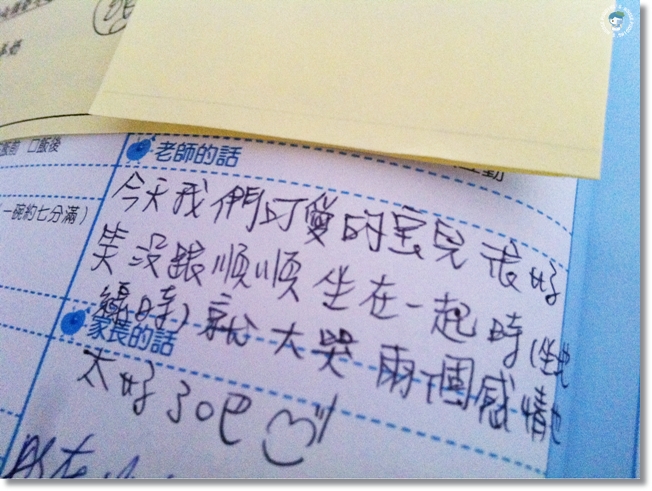 飯後
老師的話
互動
(一碗約七分滿)
今天我們可愛的宝兒很好
笑沒跟順順坐在一起時(坐地
時)就大哭兩個感情也
家長的話
太好了吧